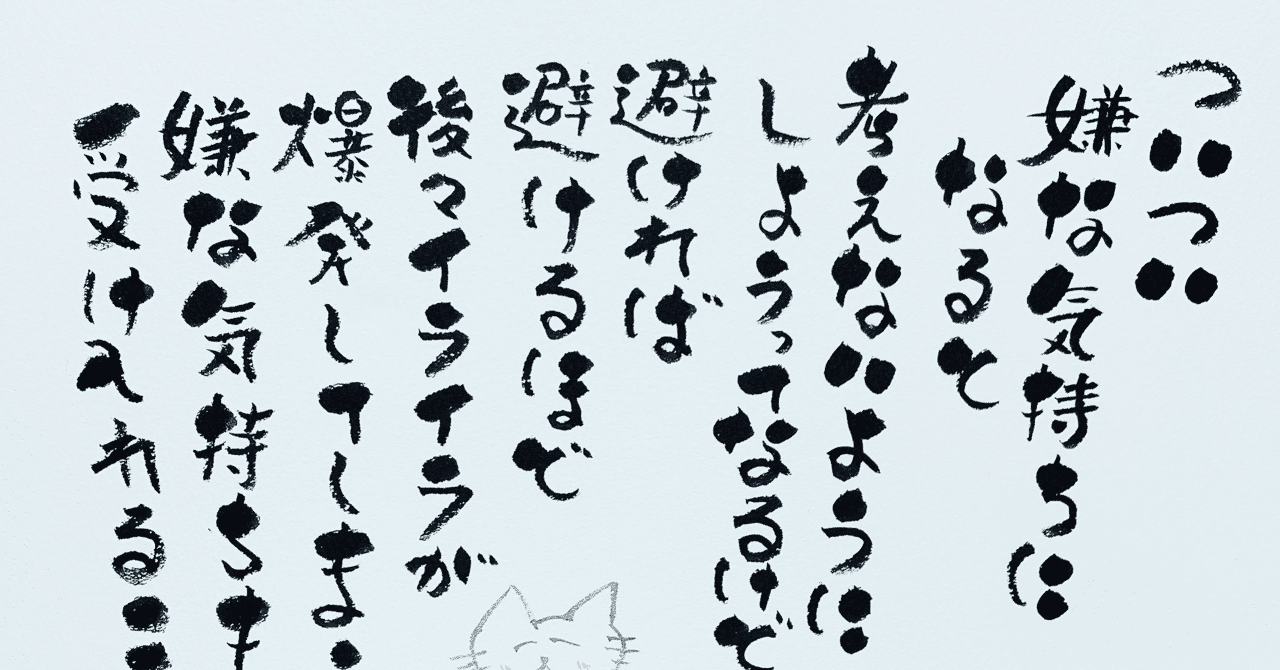 ついつい
嫌な気持ちに
なると
考えないように
しようってなるけど
避ければ
避けるほど
後々イライラが
爆発してしまう
嫌な気持ちも
受け入れるこ